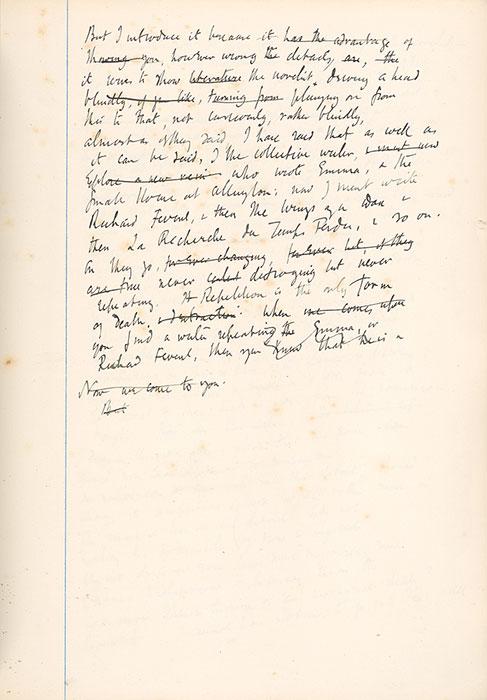 But I introduce it because it has the advantage of
showing you, however wrong the details, are, the
it serves to show literature the novelist, driving ahead
blindly, if you like, turning from plunging on from
this to that, not carelessly, rather blindly,
almost as if they said I have said that as well as
it can be said, I the collective writer, I must now
explore a new vein who wrote Emma, & the
Small House at Allington: now I must write
Richard Feverel, & then The Wings of a Dove &
then La Recherche du Temps Perdu, & so on.
On they go, for ever changing, for ever but if they
are true never destroying but never
repeating. Repetition is the only form
of Death. When we come upon
you find a writer repeating the Emma, or
Richard Feverel, then you know that he is a
Now we come to you.
But